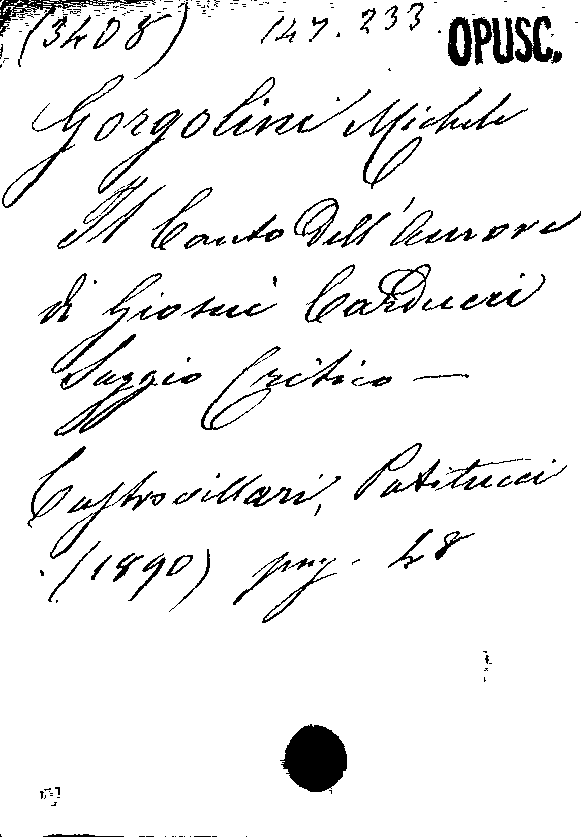 (3408) 147.233. OPUSC.
Gorgolini Michele
Il Canto Dell'Aurora
di Giosuè Carducci
Saggio Critico —
Castrovillari, Patitucci
(1890) pag. 48